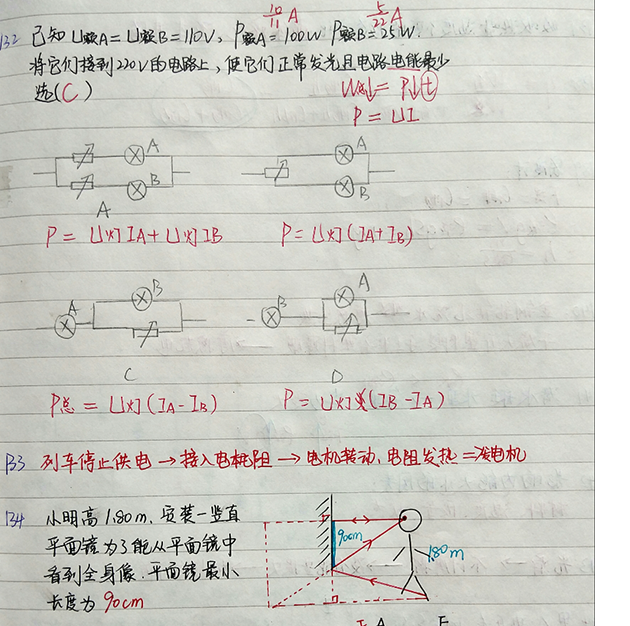 10/11 A
5/22 A
132 已知 U额A = U额B = 110V, P额A = 100W P额B = 25W.
将它们接到220V的电路上, 使它们正常发光且电路电能最少
选(C)
W总↓ = P↓(t)
P = UI
A
B
A
A
B
P = U灯IA + U灯IB
P = U灯(IA+IB)
A
B
C
B
A
D
P总 = U灯(IA - IB)
P = U灯(IB - IA)
133 列车停止供电 → 接入电阻 → 电机转动, 电阻发热 ⇒ 发电机
134 小明高 1.80m, 安装一竖直
平面镜为了能从平面镜中
看到全身像, 平面镜最小
长度为 90cm
90cm
1.80m